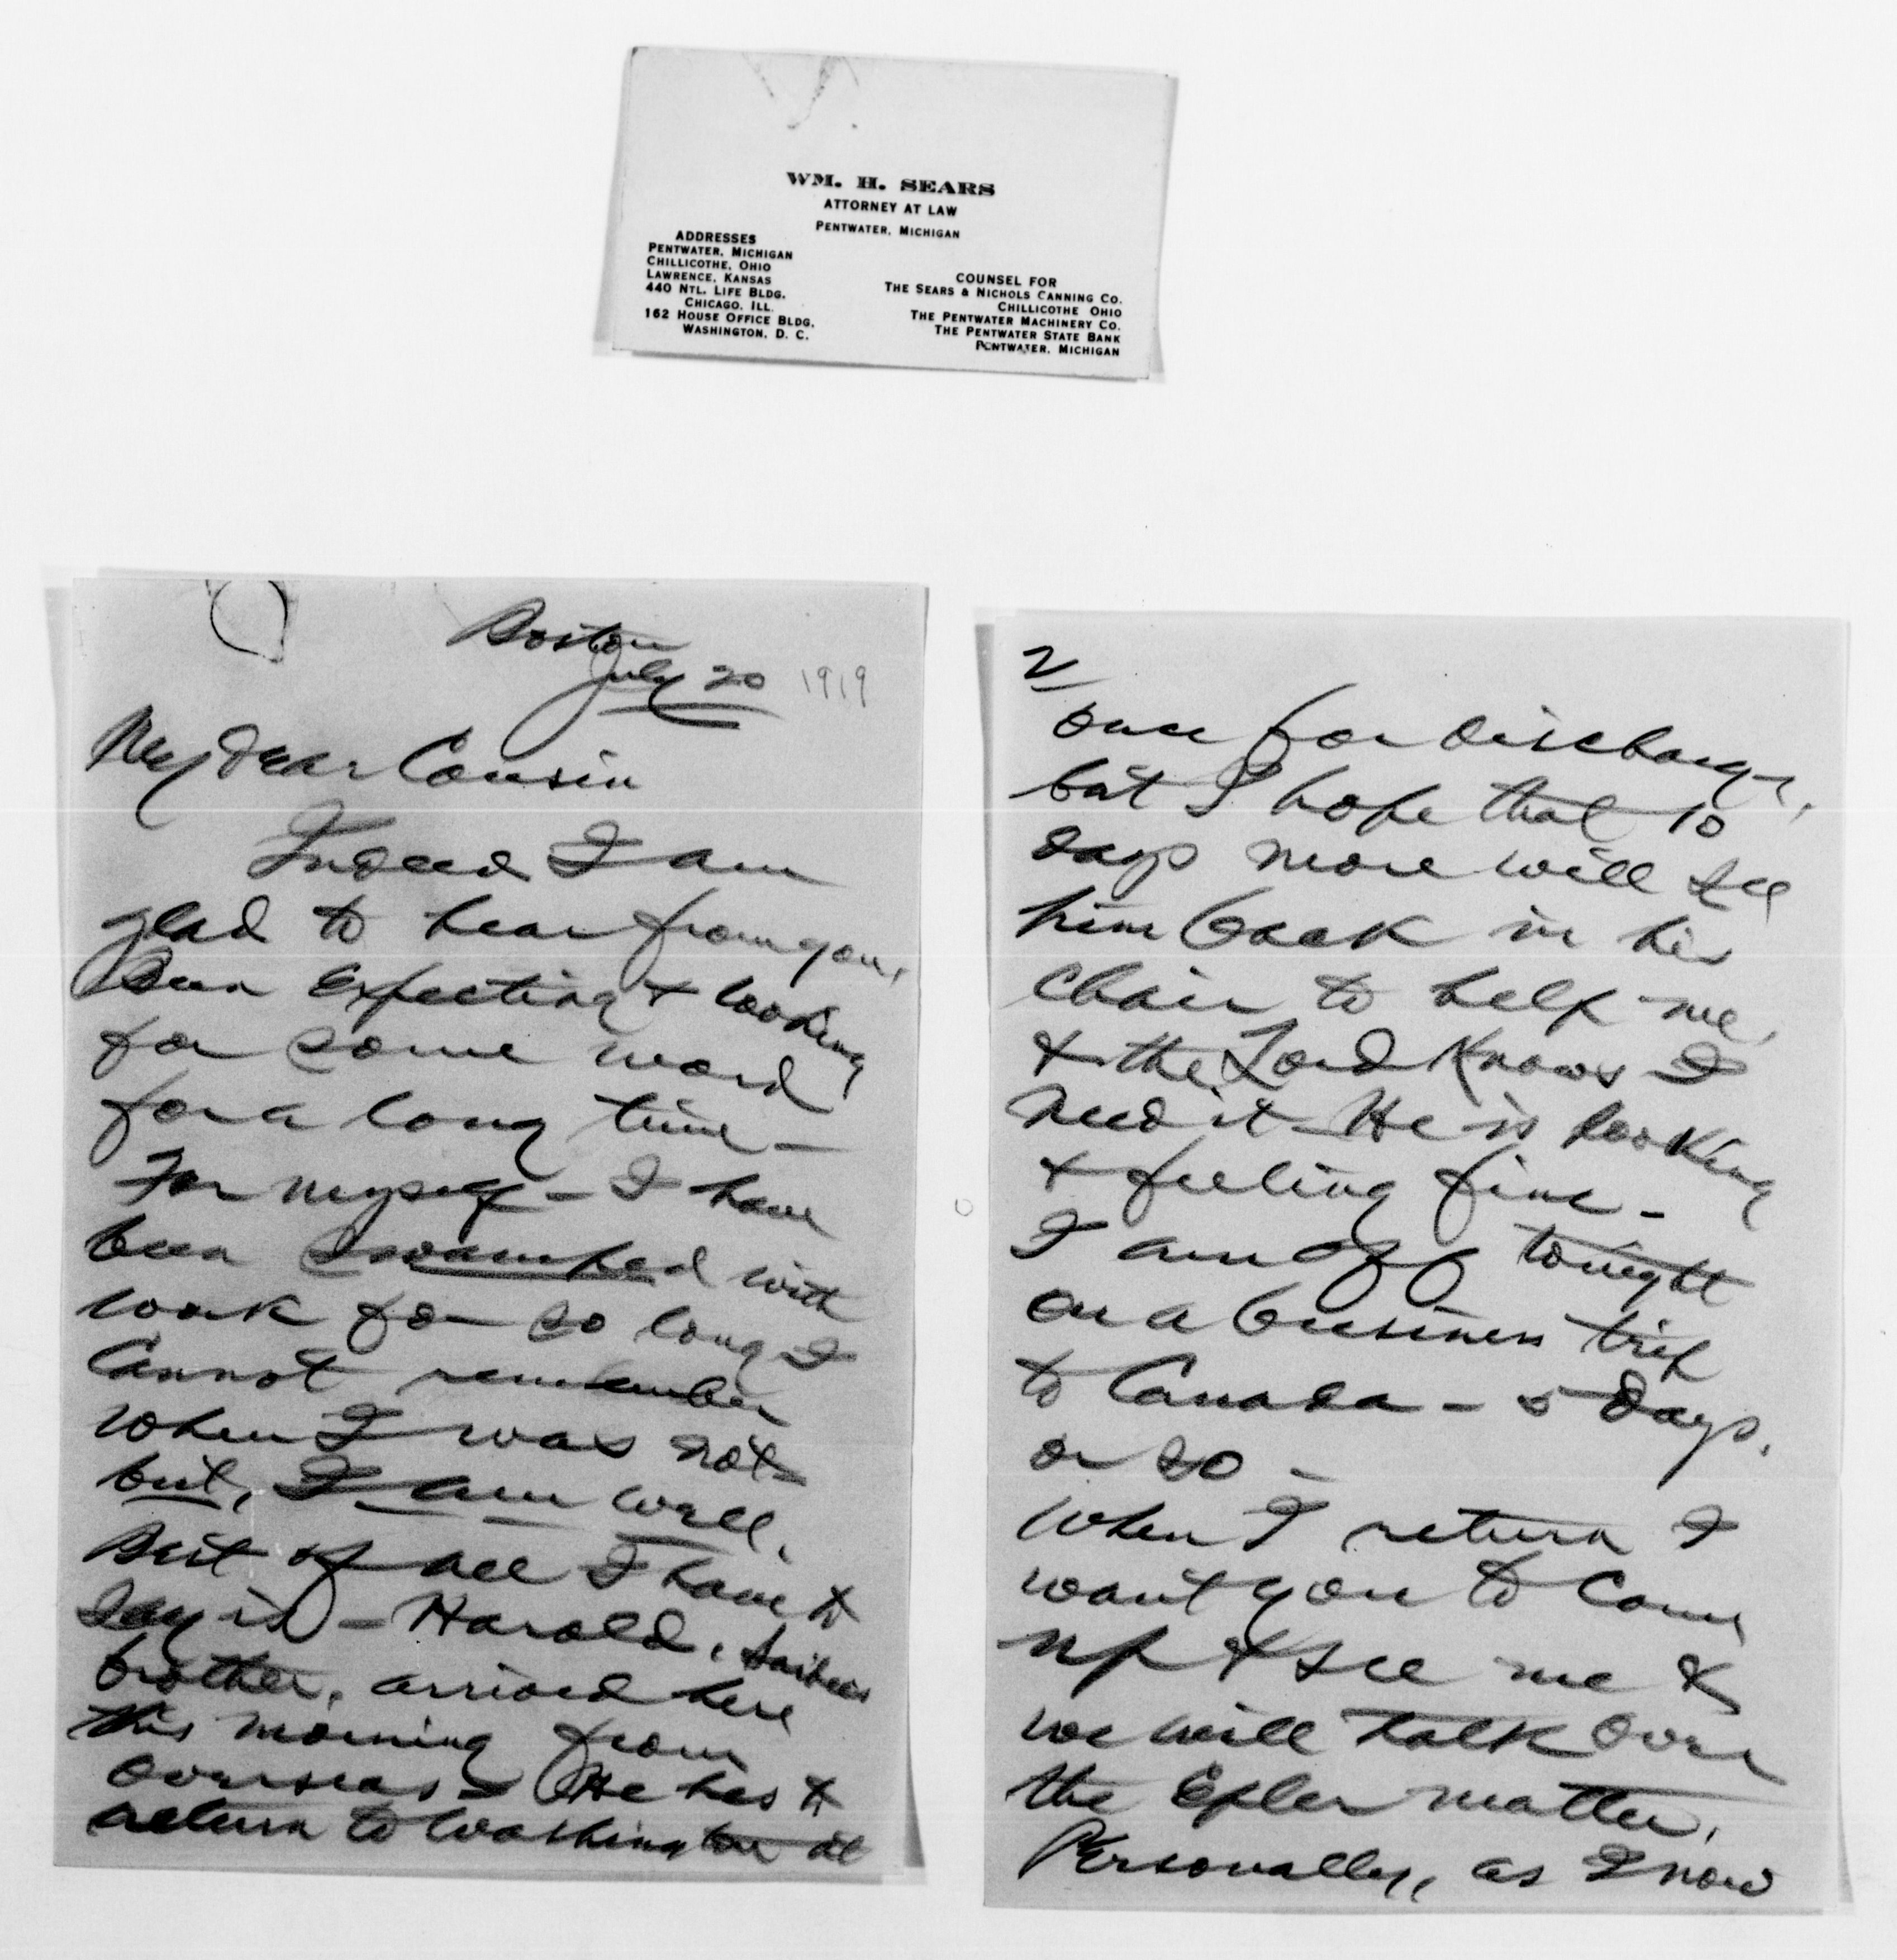 WM. H. SEARS
ATTORNEY AT LAW
PENTWATER, MICHIGAN
ADDRESSES
PENTWATER, MICHIGAN
CHILLICOTHE, OHIO
LAWRENCE, KANSAS
440 NTL. LIFE BLDG.
CHICAGO, ILL.
162 HOUSE OFFICE BLDG.
WASHINGTON, D. C.
COUNSEL FOR
THE SEARS & NICHOLS CANNING CO.
CHILLICOTHE OHIO
THE PENTWATER MACHINERY CO.
THE PENTWATER STATE BANK
PENTWATER, MICHIGAN
Boston
July 20 1919
My dear Cousin
Indeed I am
glad to hear from you,
Been Expecting & looking
for some word
for a long time -
For myself - I have
been swamped with
work for so long I
Cannot remember
when I was not
but, I am well.
Best of all I have to
say is - Harold,
brother, arrived here
this morning from
overseas - He has to
return to Washington at
2/
once for discharge,
but I hope that 10
days more will see
him back in his
Chair to help me,
& the Lord Knows I
need it - He is looking
& feeling fine -
I am off tonight
on a business trip
to Canada - 5 days,
or so -
When I return I
want you to come
up & see me &
we will talk over
the Epler matter.
Personally, as I now